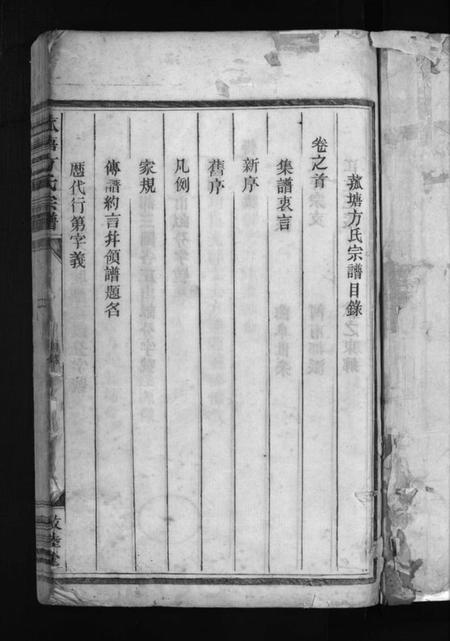 菰塘方氏宗譜目錄
卷之首
集譜衷言
新序
舊序
凡例
家規
傳譜約言并領譜題名
歷代行第字義
方氏宗譜